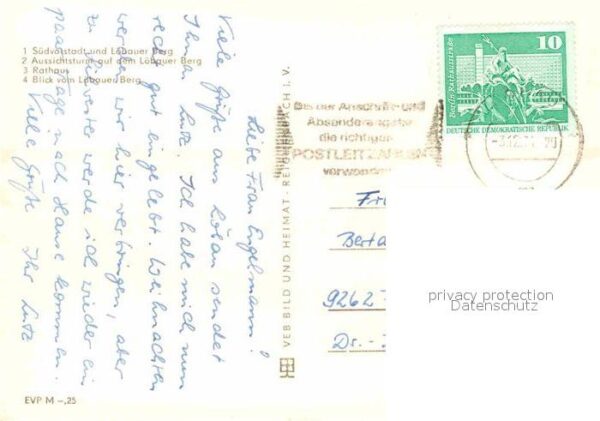 1 Südvorstadt und Löbauer Berg
2 Aussichtsturm auf dem Löbauer Berg
3 Rathaus
4 Blick vom Löbauer Berg
Liebe Frau Engelmann!
Viele Grüße aus Löbau sendet
Ihnen Lutz. Ich habe mich nun
recht gut eingelebt. Weihnachten
werden wir hier verbringen, aber
zu Silvester werde ich wieder ein
paar Tage nach Hause kommen.
Viele Grüße Ihr Lutz
EVP M –,25
VEB BILD UND HEIMAT · REICHENBACH I. V.
Bei der Anschrift und
Absenderangabe
die richtigen
POSTLEITZAHLEN
verwenden
10
Berlin, Rathausstraße
DEUTSCHE DEMOKRATISCHE REPUBLIK
Fr
Berta
9262
Dr. -
privacy protection
Datenschutz